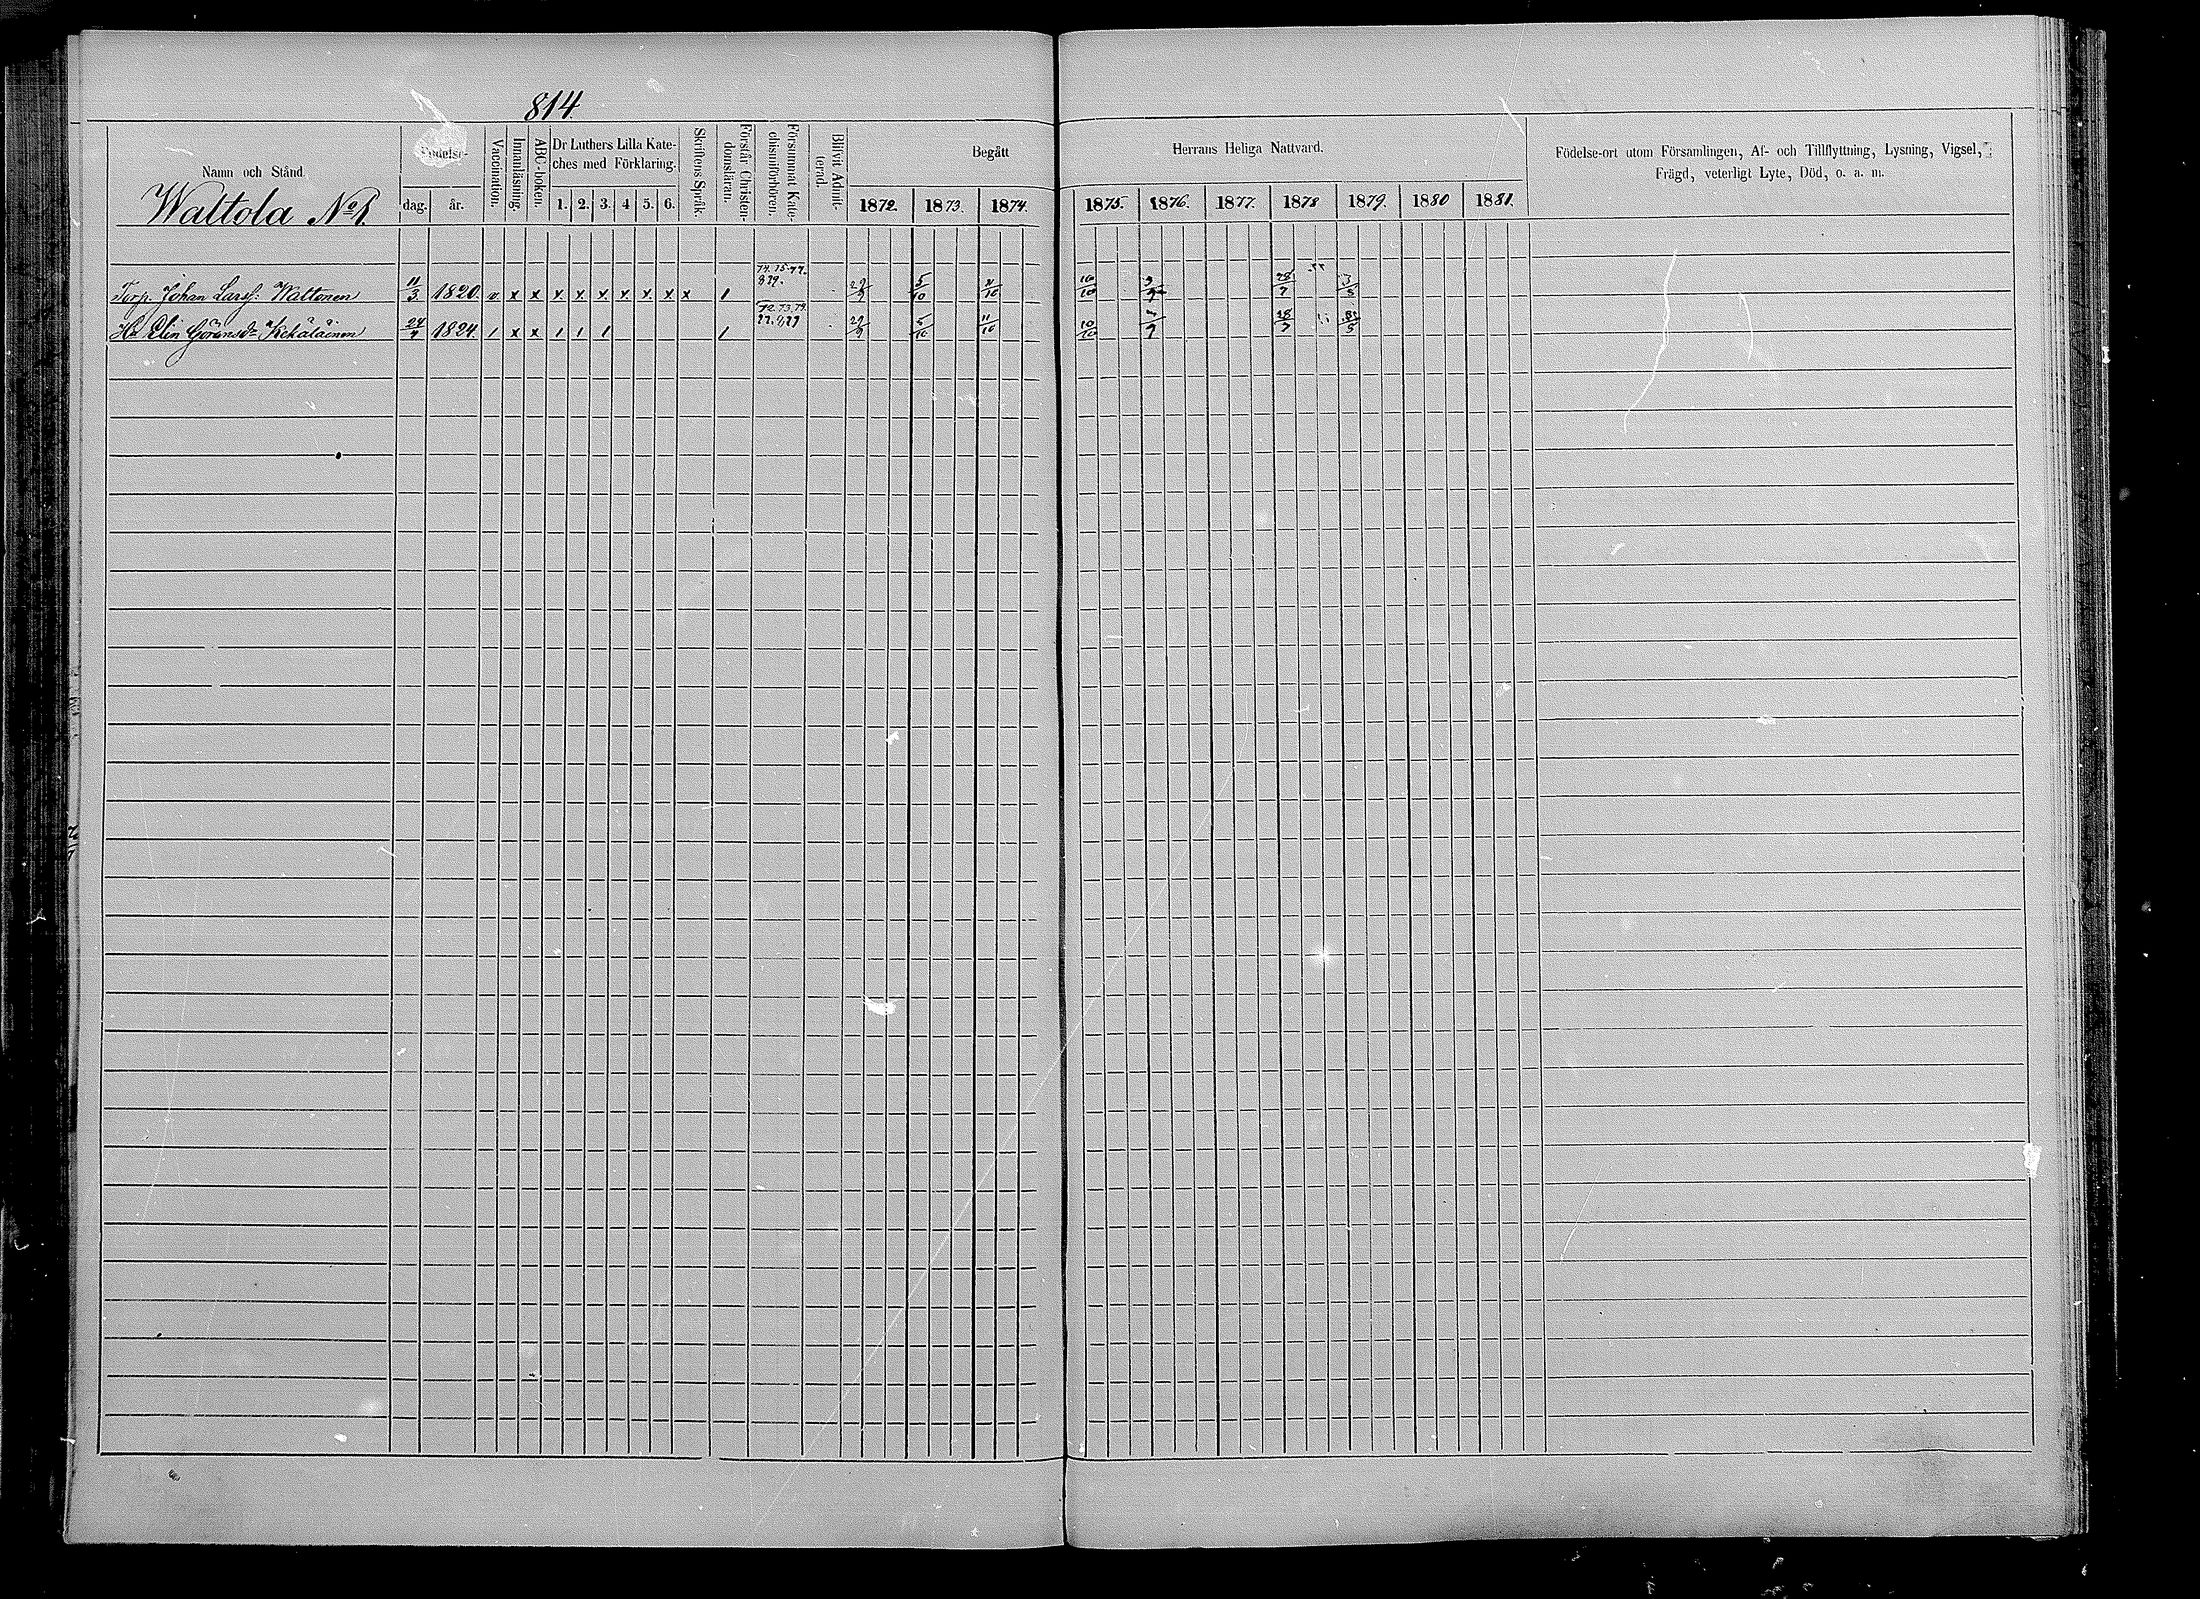 814.
Namn och Stånd.
Waltola No 1.
Födelse-
dag. år.
Vaccination.
Innanläsning.
ABC-boken.
Dr Luthers Lilla Kate-
ches med Förklaring.
1. 2. 3. 4 5. 6.
Skriftens Språk.
Förstår Christen-
domsläran.
Försummat Kate-
chismiförhören.
Blivit Admit-
terad.
Begått
1872. 1873. 1874.
Herrans Heliga Nattvard.
1875. 1876. 1877. 1878 1879. 1880 1881.
Födelse-ort utom Församlingen, Af- och Tillflyttning, Lysning, Vigsel,
Frägd, veterligt Lyte, Död, o. a. m.
Torp. Johan Larsf: Waltonen 11/3 1820. x x x x x x x x x 1 5/10 10/10
Hu Elin Göransd. Kekäläinen 24/7 1824. 1 x x 1 1 1 1 72.73.74. 5/10 11/10 10/10